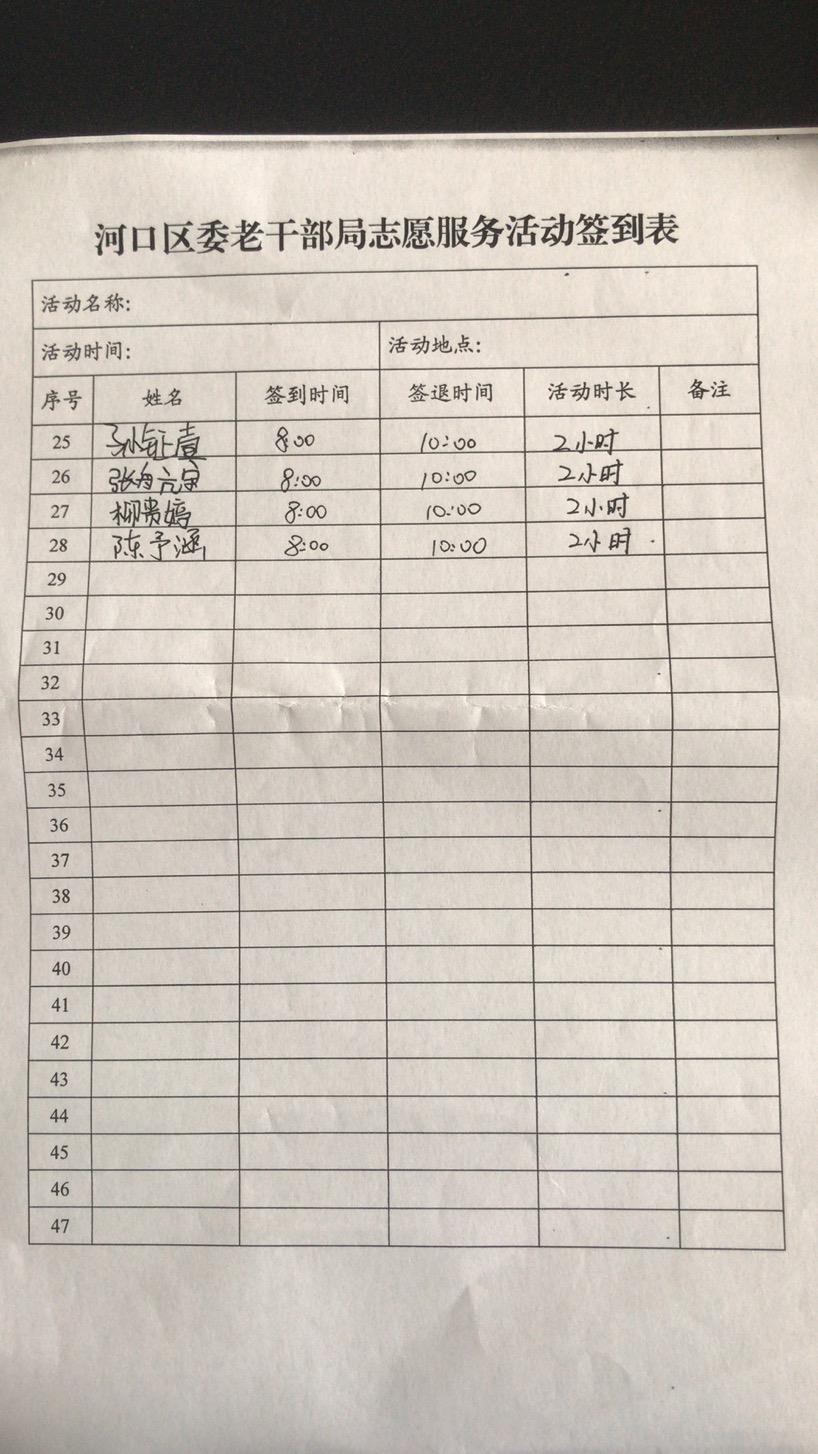 河口区委老干部局志愿服务活动签到表
活动名称:
活动时间: 活动地点:
序号 姓名 签到时间 签退时间 活动时长 备注
25 孙钲壹 8:00 10:00 2小时
26 张舟元宗 8:00 10:00 2小时
27 柳贵嫱 8:00 10:00 2小时
28 陈予涵 8:00 10:00 2小时
29
30
31
32
33
34
35
36
37
38
39
40
41
42
43
44
45
46
47